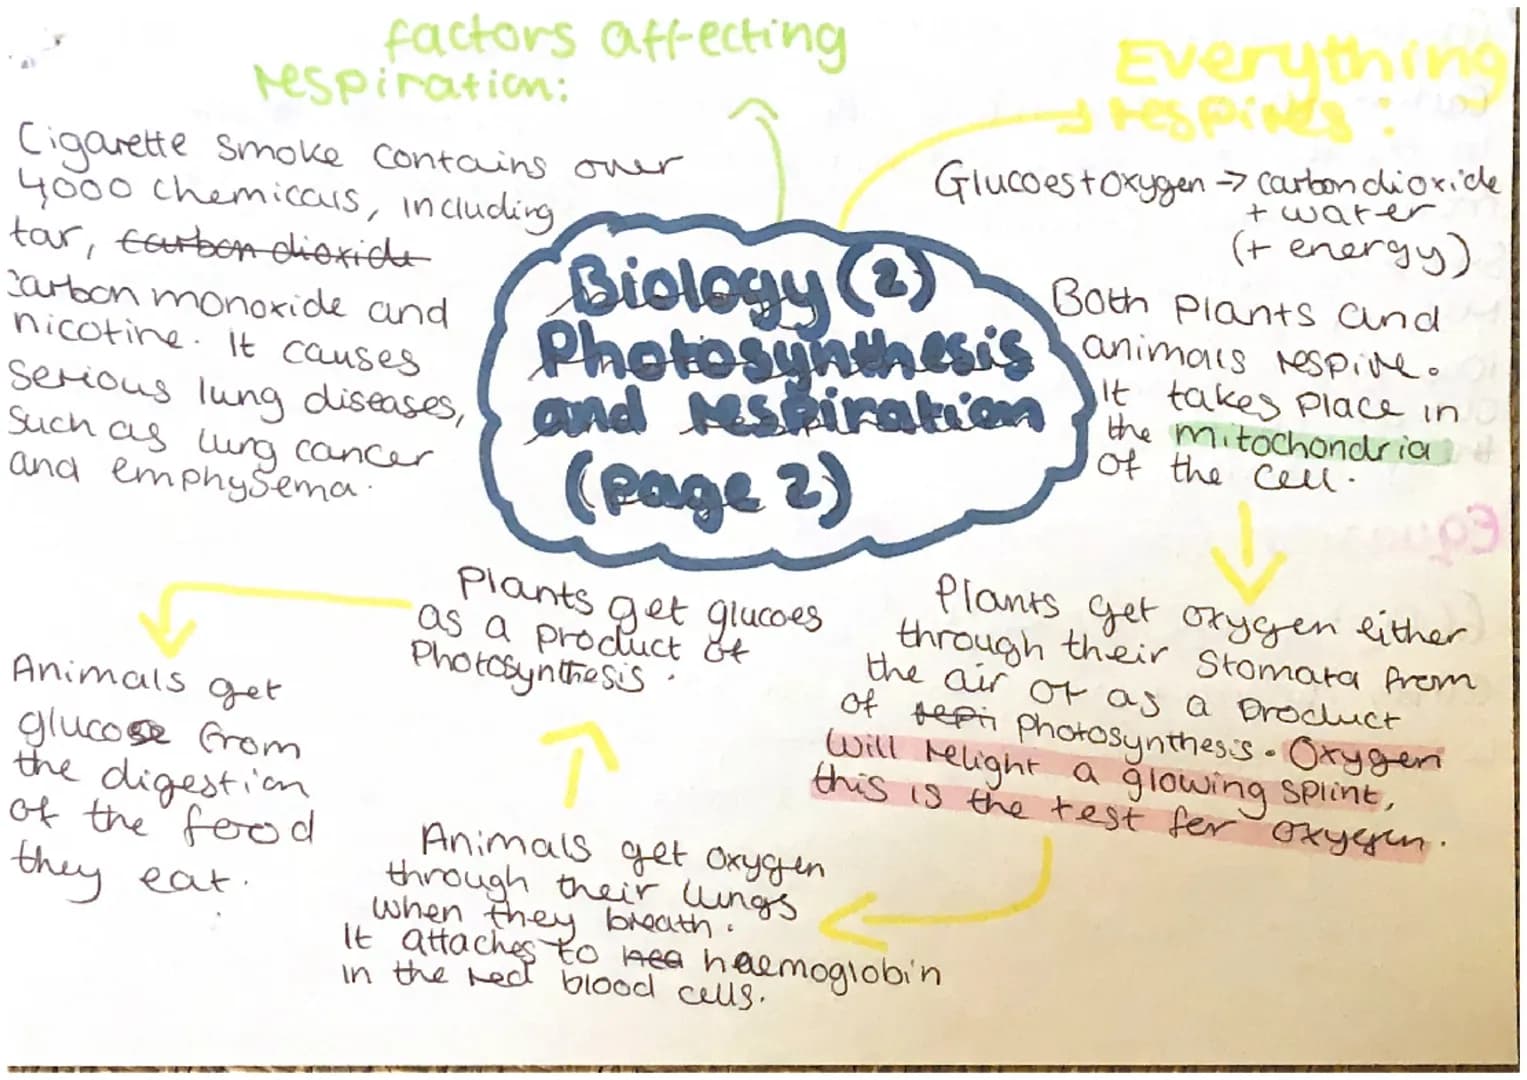 factors affecting
respiration:
Cigarette smoke contains over
4000 chemicals, including
tar, carbon dioxide
carbon monoxide and
nicotine. It causes
serious lung diseases,
such as lung cancer
and emphysema.
Everything
respires:
Glucoes + oxygen → carbon dioxide
+ water
(+ energy)
Both plants and
animals respire.
It takes place in
the mitochondria
of the cell.
Biology (2)
Photosynthesis
and respiration
(page 2)
Plants get oxygen either
through their stomata from
the air or as a product
of photosynthesis. Oxygen
will relight a glowing splint,
this is the test for oxygen.
Animals get oxygen
through their lungs
when they breath.
It attaches to hea haemoglobin
in the red blood cells.
Plants get glucoes
as a product of
Photosynthesis.
Animals get
glucose from
the digestion
of the food
they eat.